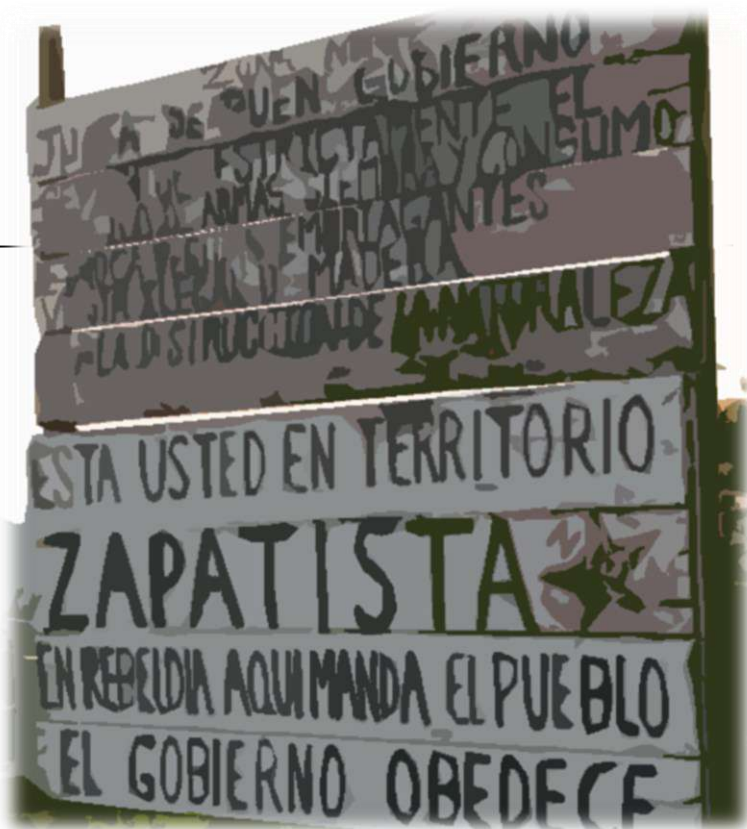 ZONA
JU A DE BUEN GOBIERNO
ESTRICTAMENTE EL
DE ARMAS SIEMBRA Y CONSUMO
EMBRIAGANTES
MADERA
LA D STRUCCION DE LA NATURALEZA
ESTA USTED EN TERRITORIO
ZAPATISTA
EN REBELDIA AQUI MANDA EL PUEBLO
EL GOBIERNO OBEDECE